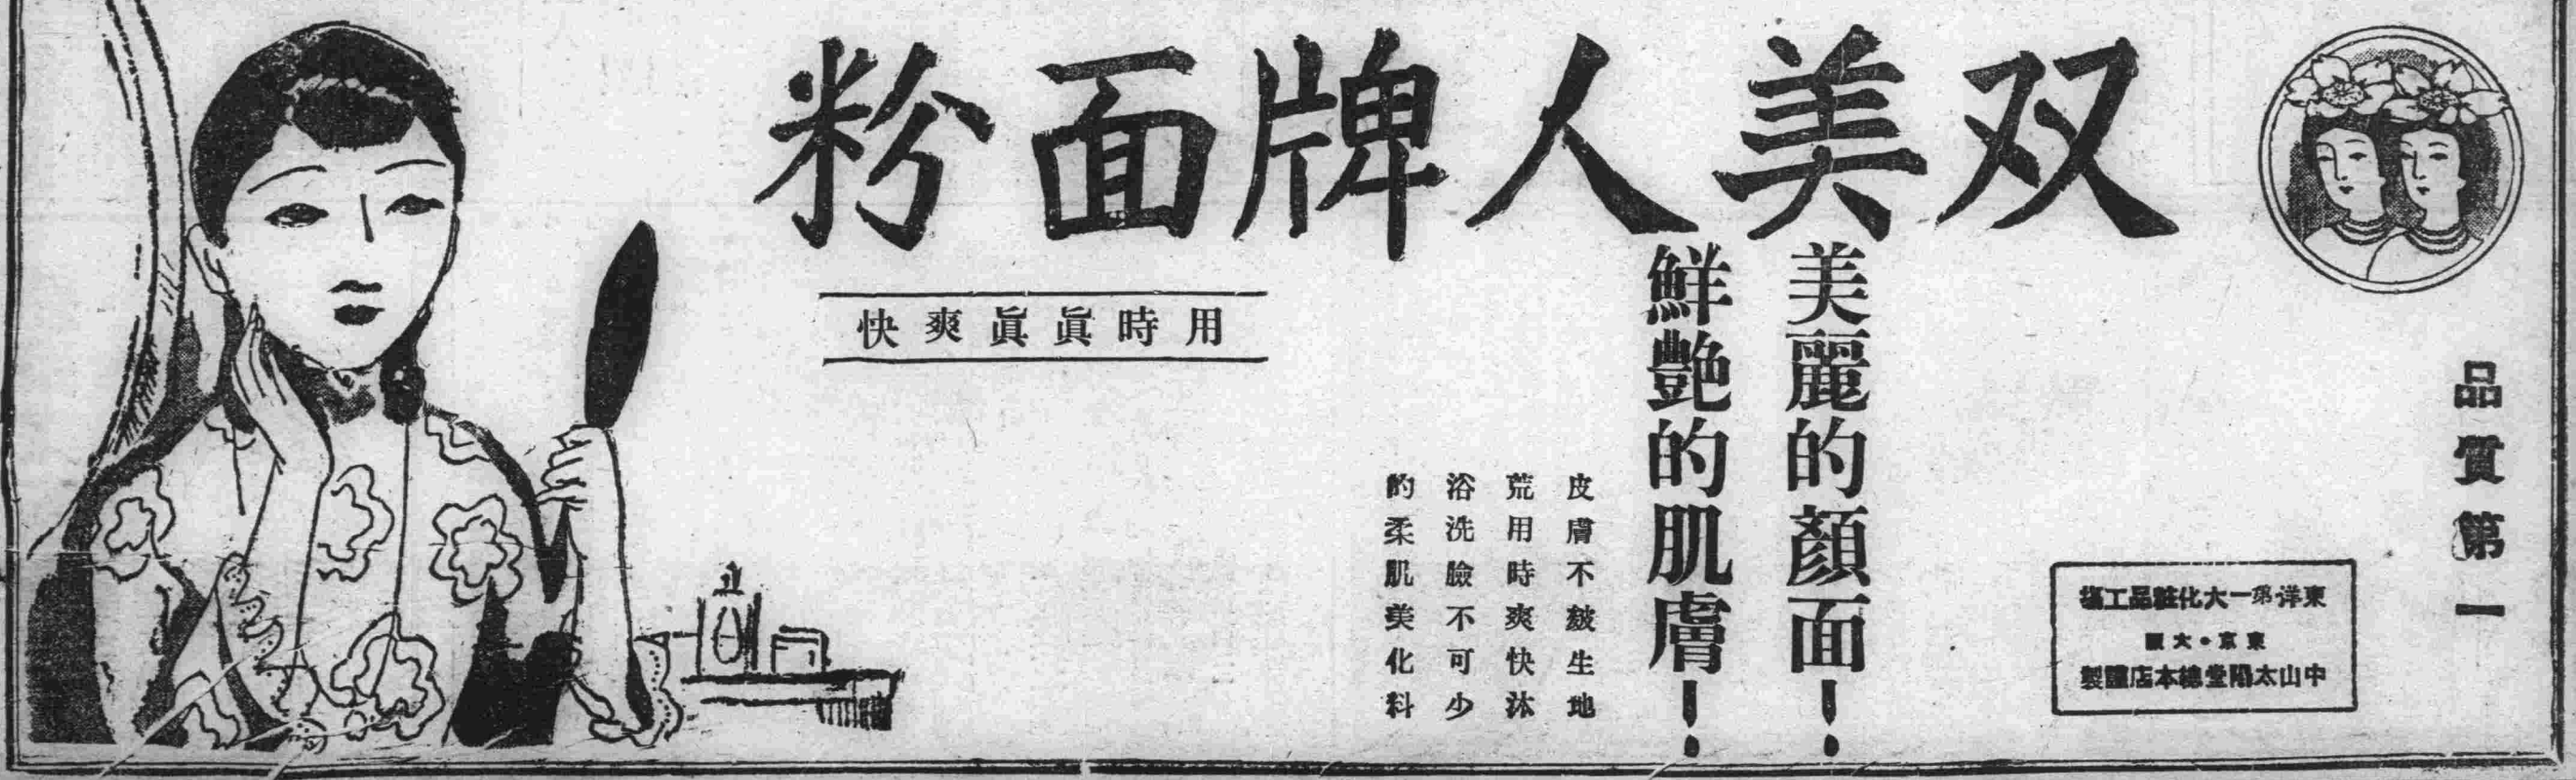 双美人牌面粉
品質第一
美麗的顏面！
鮮艷的肌膚！
用時眞眞爽快
皮膚不皴生地
荒用時爽快沐
浴洗臉不可少
的柔肌美化料
東洋第一大化粧品工塲
東京・大阪
中山太陽堂總本店謹製